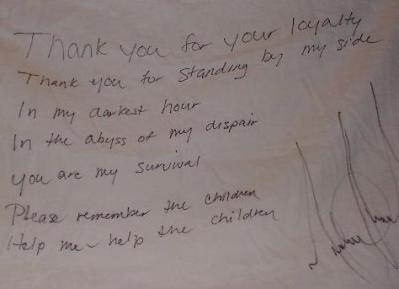 Thank you for your loyalty
Thank you for standing by my side
In my darkest hour
In the abyss of my dispair
you are my survival
Please remember the children
Help me~ help the children